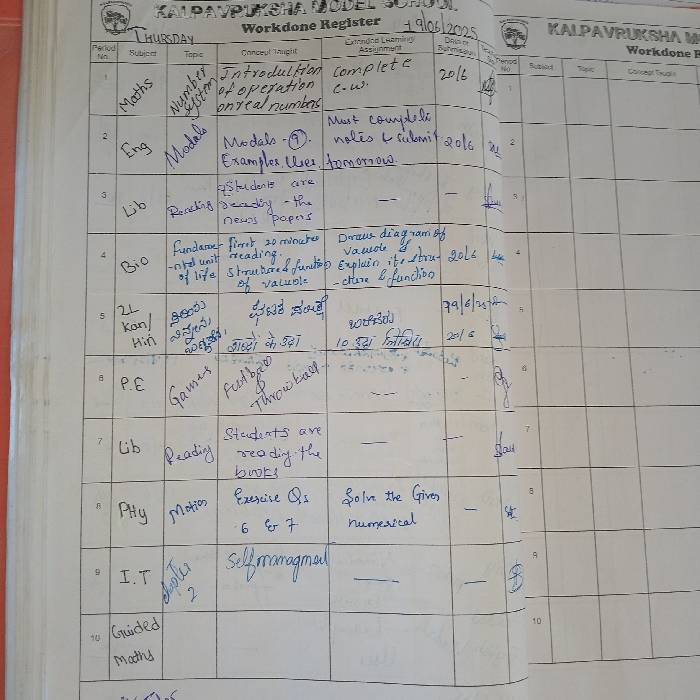 KALPAVRUKSHA MODEL SCHOOL
Workdone Register
THURSDAY
19/06/2025
Period No.
Subject
Topic
Concept Taught
Extended Learning/ Assignment
Date of Submission
1
Maths
Number System
Introduction of operation on real numbers
Complete C.W.
20/6
2
Eng
Modals
Modals - 9
Examples, Uses,
Must complete notes & submit tomorrow.
20/6
3
Lib
Reading
Students are reading the news papers
—
—
4
Bio
Fundame-ntal unit of life
First 20 minutes reading.
Structure & function of vacuole
Draw diagram of vacuole & Explain its stru-cture & function
20/6
5
2L Kan/ Hin
शब्दों के
10
20/6
6
P.E
Games
Football & Throwball
—
7
Lib
Reading
Students are reading the books
—
—
8
PHy
Motion
Exercise Qs 6 & 7
Solve the Given numerical
—
9
I.T
2
Selfmanagment
—
—
10
Guided Maths
KALPAVRUKSHA M
Workdone R
Period No
Subject
Topic
Concept Taught
1
2
3
4
5
6
7
8
9
10